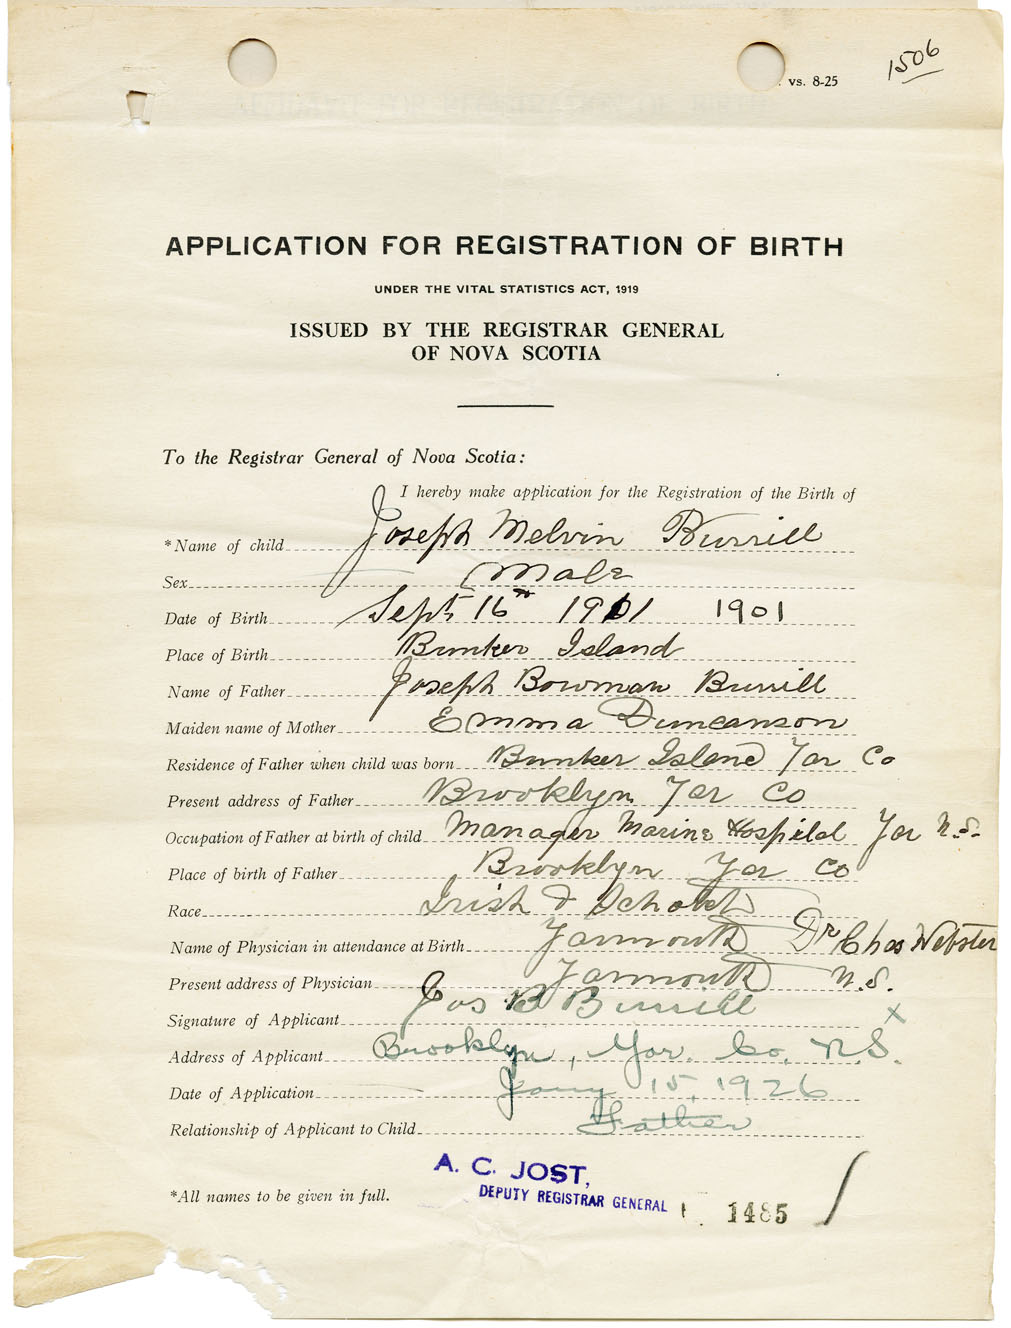 1506
vs. 8-25
APPLICATION FOR REGISTRATION OF BIRTH
UNDER THE VITAL STATISTICS ACT, 1919
ISSUED BY THE REGISTRAR GENERAL
OF NOVA SCOTIA
To the Registrar General of Nova Scotia:
I hereby make application for the Registration of the Birth of
*Name of child Joseph Melvin Burrill
Sex Male
Date of Birth Sept 16th 1901 1901
Place of Birth Bunker Island
Name of Father Joseph Bowman Burrill
Maiden name of Mother Emma Duncanson
Residence of Father when child was born Bunker Island Yar Co
Present address of Father Brooklyn Yar Co
Occupation of Father at birth of child Manager Marine Hospital Yar N.S.
Place of birth of Father Brooklyn Yar Co
Race Irish &
Name of Physician in attendance at Birth Yarmouth Dr Chas Webster
Present address of Physician Yarmouth N.S.
Signature of Applicant Jos B Burrill x
Address of Applicant Brooklyn, Yar. Co. N.S.
Date of Application Jany 15, 1926
Relationship of Applicant to Child Father
A. C. JOST,
DEPUTY REGISTRAR GENERAL
*All names to be given in full.
1485